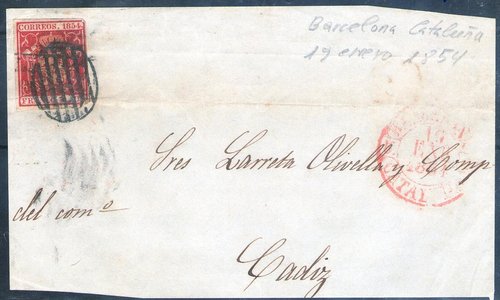 CORREOS. 1854.
Barcelona Cataluña
19 enero 1854
Sres Larreta Olivella y Comp
del como
Cadiz